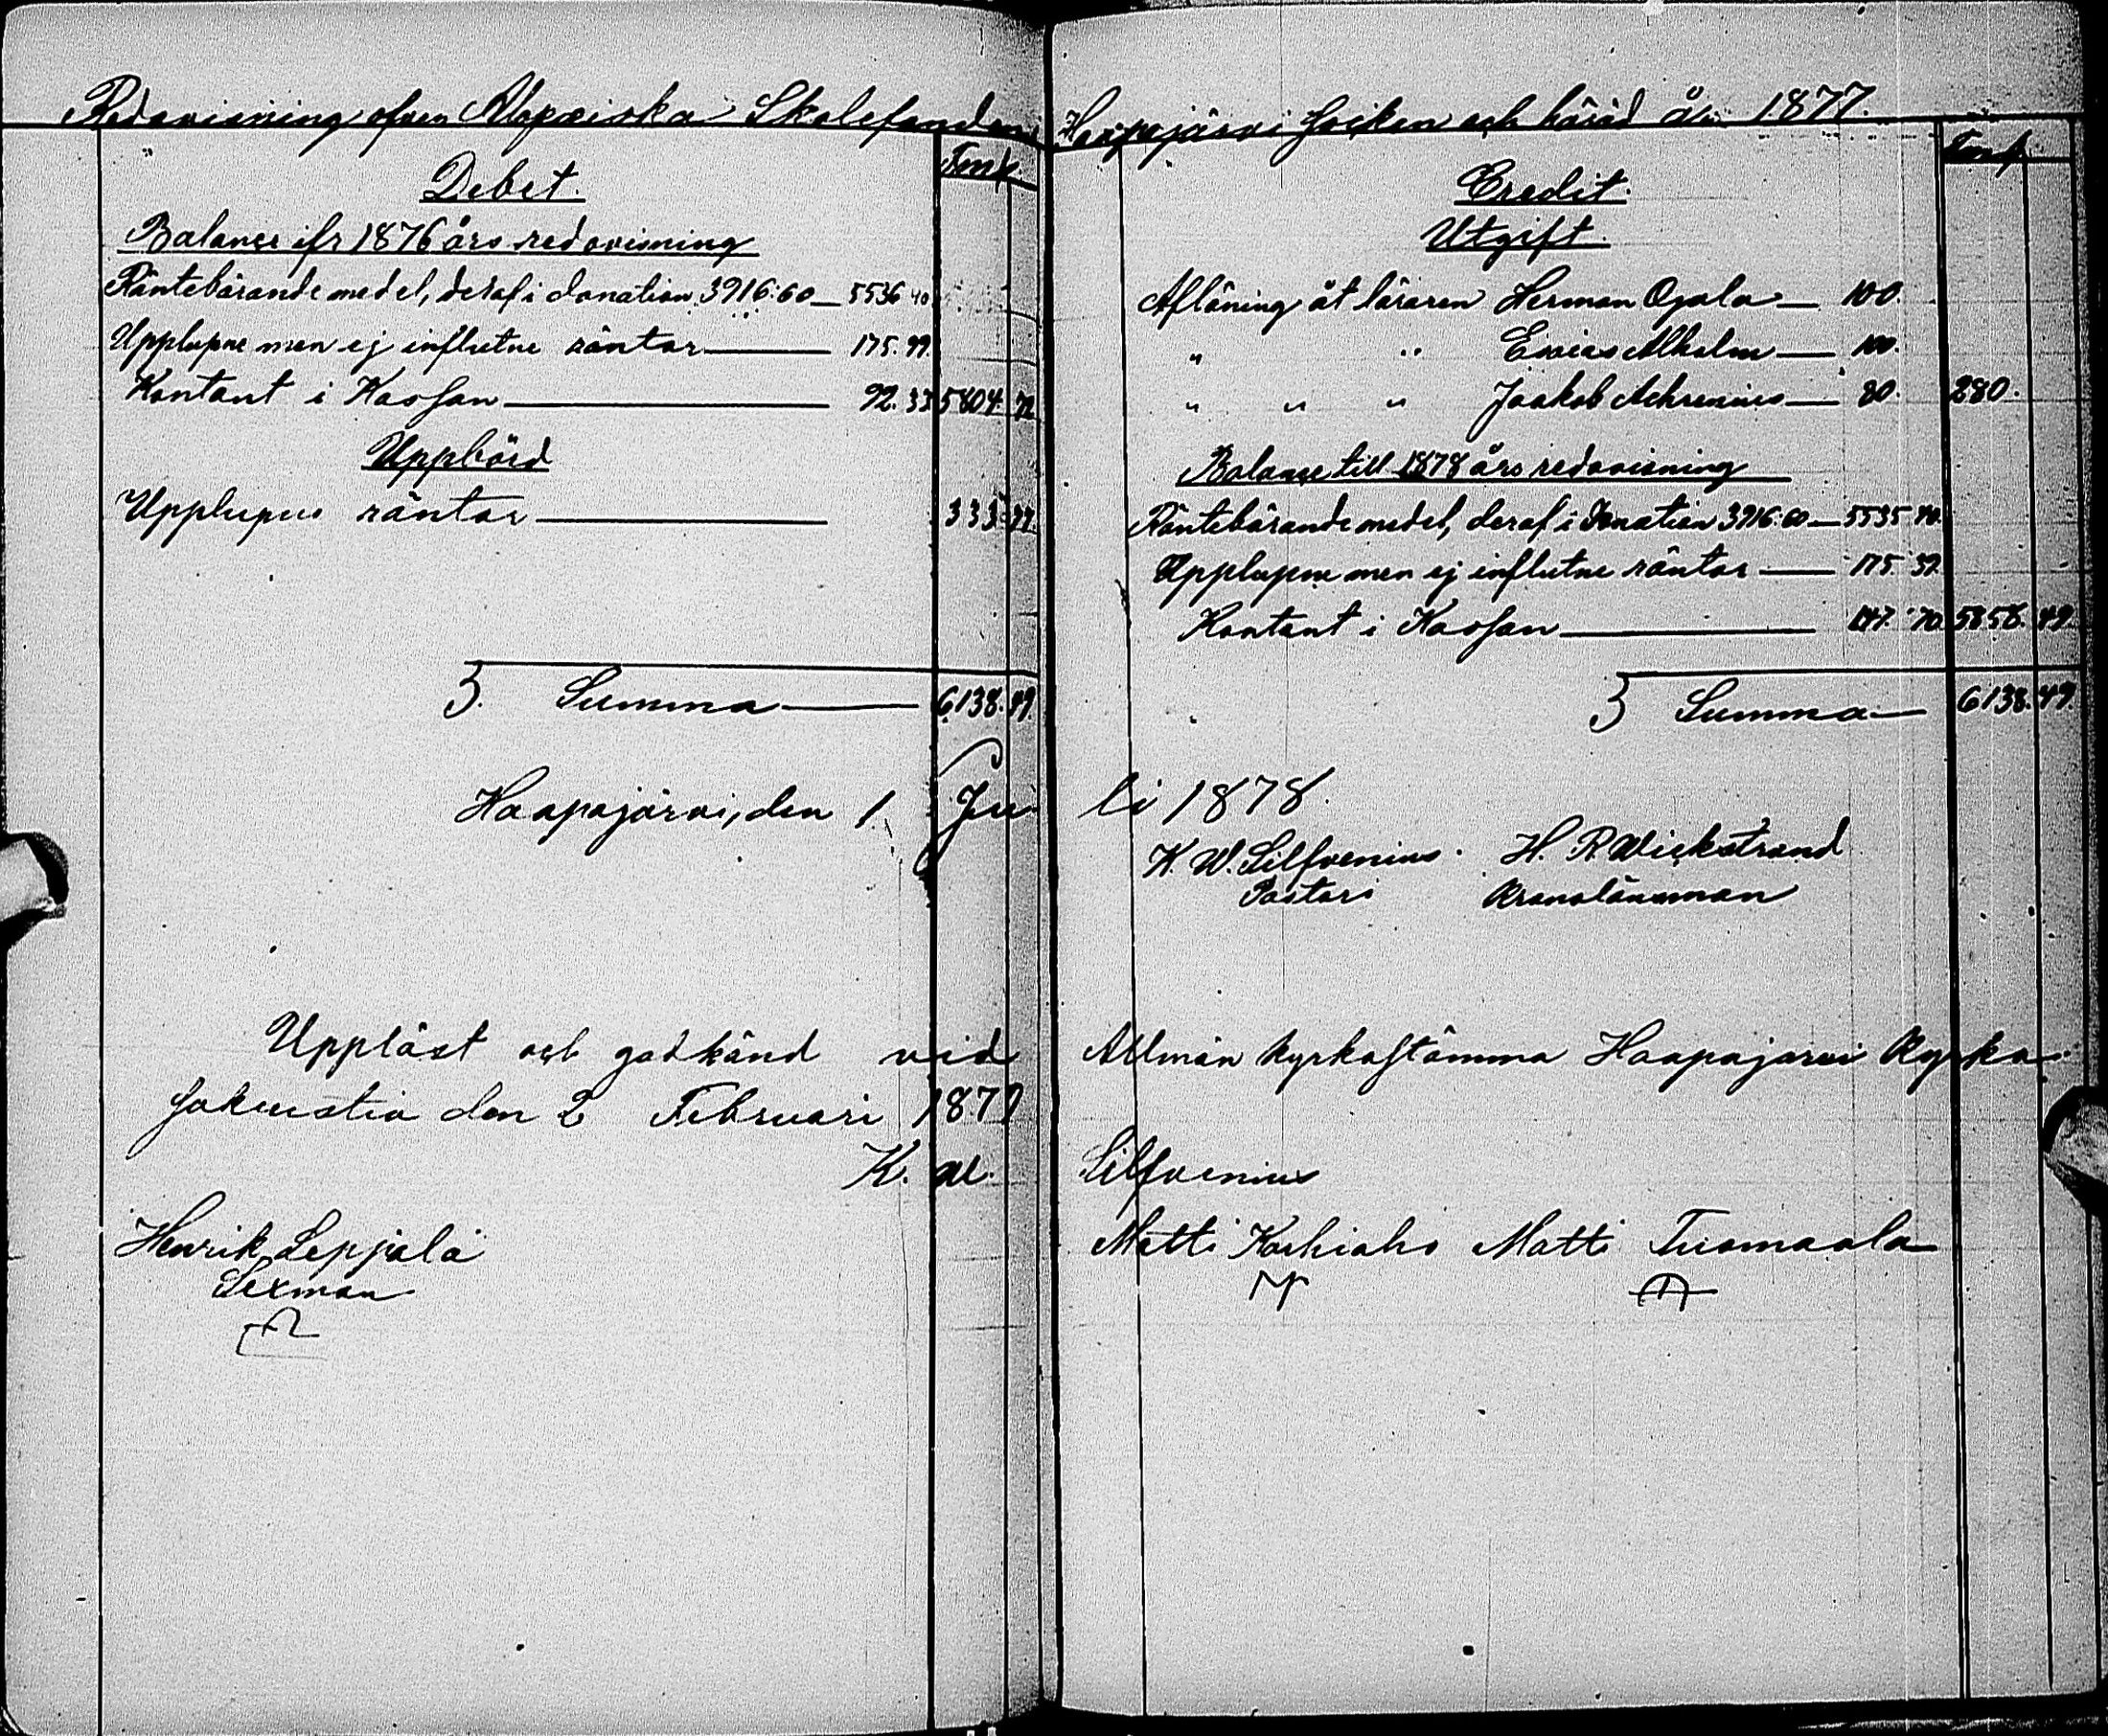 Redovisning öfver Alopæiska Skolefonden
Fmk
Debet.
Balance ifr 1876 års redovisning
Räntebärande medel, deraf i donation 3916:60 — 5536 40
Upplupne men ej influtne räntor — 175. 99.
Kontant i Kassan — 92. 33 5804. 72
Uppbörd
Upplupne räntor — 333 77.
Summa — 6138. 49.
Haapajärvi, den 1 Ju
Uppläst och godkänd vid
den 2 Februari 187
K. W.
Henrik Leppälä
Sexman
Haapajärvi Socken och härad år 1877.
Fmk
Credit.
Utgift.
Aflöning åt läraren Herman Ojala — 100.
" " Esaias Alholm — 100.
" " " Jaakob Achrenius — 80. 280.
Balance till 1878 års redovisning
Räntebärande medel, deraf i Donation 3916:60 — 5535 40.
Upplupne men ej influtne räntor — 175. 39.
Kontant i Kassan — 147. 70 5858. 49
Summa — 6138. 49.
li 1878.
K. W. Silfvenius. H. R. Wickstrand
Pastor Kronolänsman
Allmän kyrkostämma Haapajärvi Kyrka
Silfvenius
Matti Karhiaho Matti Tuomaala